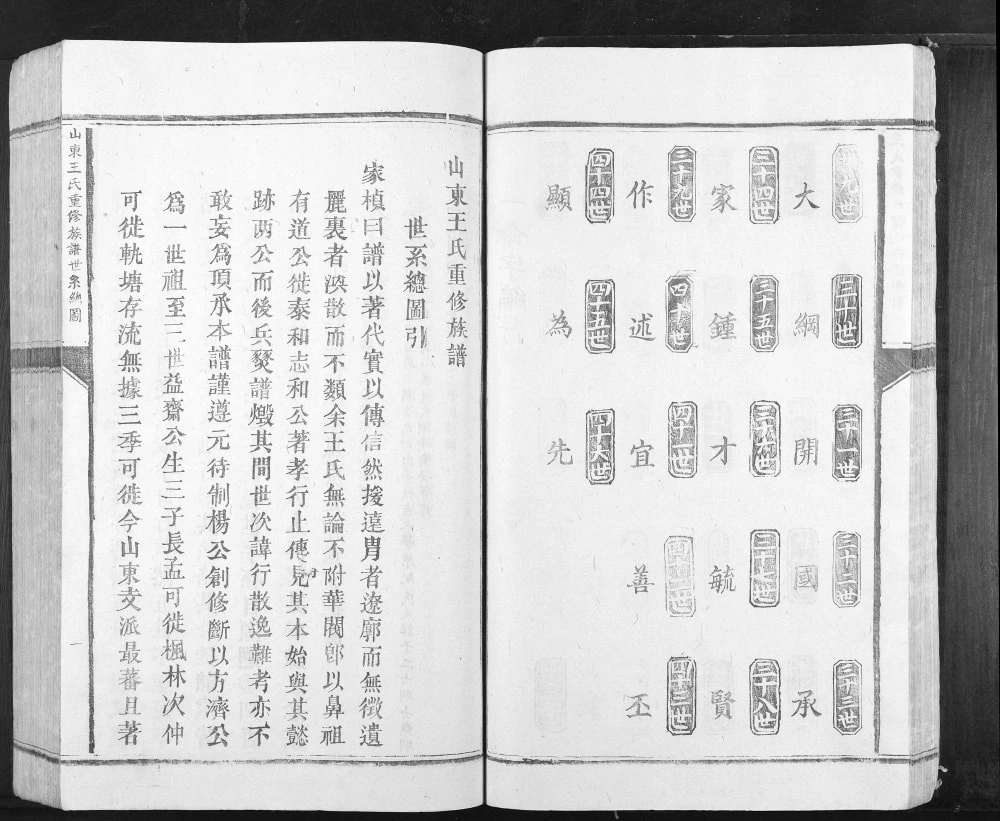 二十九世 三十世 三十一世 三十二世 三十三世
大 綱 開 國 承
三十四世 三十五世 三十六世 三十七世 三十八世
家 鍾 才 毓 賢
三十九世 四十世 四十一世 四十二世 四十三世
作 述 宜 善 丕
四十四世 四十五世 四十六世
顯 為 先
山東王氏重修族譜
世系總圖引
家楨曰譜以著代實以傳信然援遠胄者遼廓而無徵遺
麗裏者渙散而不類余王氏無論不附華閥卽以鼻祖
有道公徙泰和志和公著孝行止傳見其本始與其懿
跡兩公而後兵燹譜燬其間世次諱行散逸難考亦不
敢妄爲頂承本譜謹遵元待制楊公創修斷以方濟公
爲一世祖至三世益齋公生三子長孟可徙楓林次仲
可徙軌塘存流無據三季可徙今山東支派最蕃且著
山東王氏重修族譜世系總圖
一